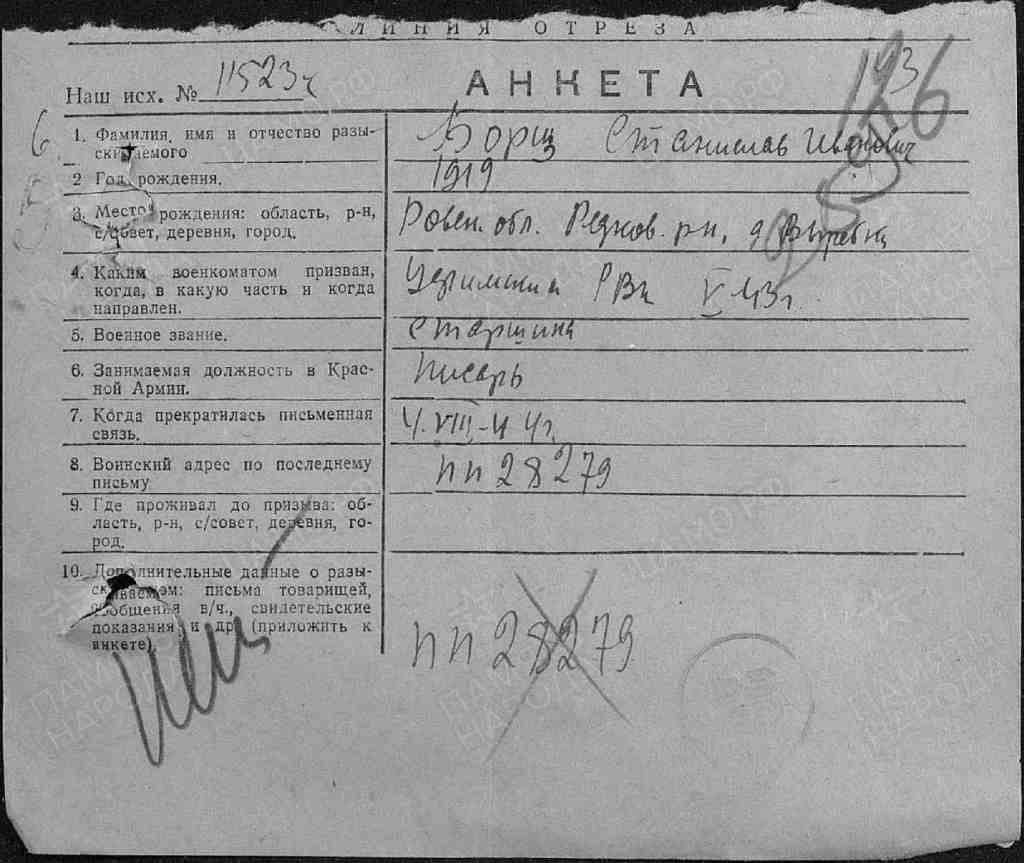 ЛИНИЯ ОТРЕЗА
Наш исх. № 11523с
АНКЕТА
1. Фамилия, имя и отчество разы-
скиваемого
Борщ Станислав Иванович
2 Год рождения.
1919
3. Место рождения: область, р-н,
с/совет, деревня, город.
Ровен. обл. р-н, д
4. Каким военкоматом призван,
когда, в какую часть и когда
направлен.
РВК V 43 г.
5. Военное звание.
старшина
6. Занимаемая должность в Крас-
ной Армии.
писарь
7. Когда прекратилась письменная
связь.
4.VIII-44г.
8. Воинский адрес по последнему
письму
пп 28279
9. Где проживал до призыва: об-
ласть, р-н, с/совет, деревня, го-
род.
10. Дополнительные данные о разы-
скиваемом: письма товарищей,
сообщения в/ч., свидетельские
показания и др. (приложить к
анкете).
пп 28279